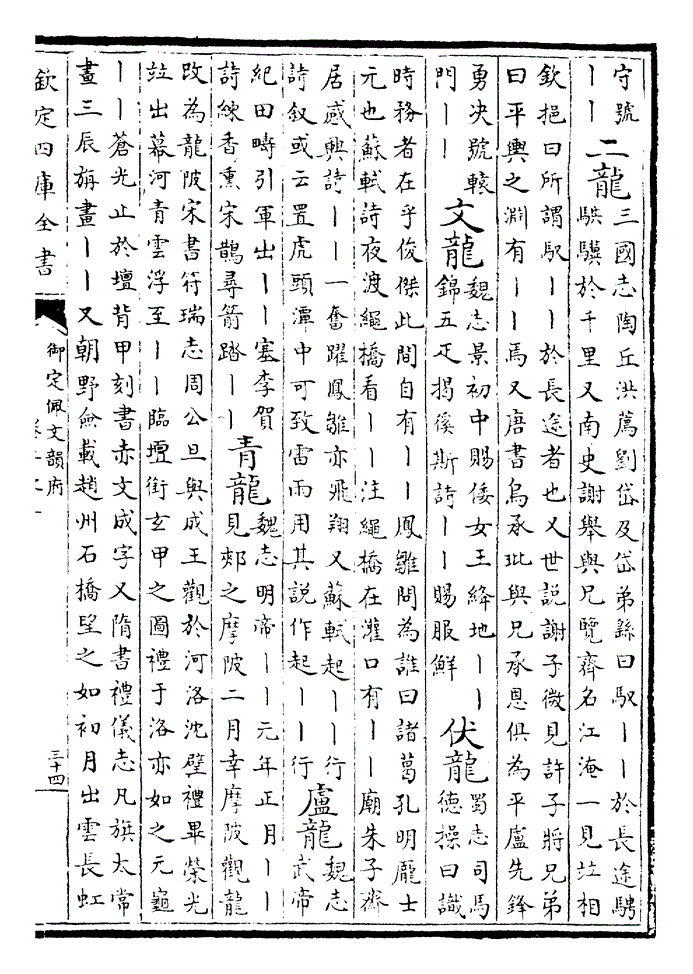 守號
｜｜
二龍
三國志陶丘洪薦劉岱及岱弟繇曰馭｜｜於長途騁
騏驥於千里又南史謝舉與兄覽齊名江淹一見竝相
欽挹曰所謂馭｜｜於長途者也又世説謝子微見許子將兄弟
曰平輿之淵有｜｜焉又唐書烏承玭與兄承恩俱為平盧先鋒
勇决號轅
門｜｜
文龍
魏志景初中賜倭女王絳地｜｜
錦五疋揭徯斯詩｜｜賜服鮮
伏龍
蜀志司馬
德操曰識
時務者在乎俊傑此間自有｜｜鳳雛問為誰曰諸葛孔明龐士
元也蘇軾詩夜渡繩橋看｜｜注繩橋在灌口有｜｜廟朱子齋
居感興詩｜｜一奮躍鳳雛亦飛翔又蘇軾起｜｜行
詩叙或云置虎頭潭中可致雷雨用其説作起｜｜行
盧龍
魏志
武帝
紀田疇引軍出｜｜塞李賀
詩練香熏宋鵲尋箭踏｜｜
青龍
魏志明帝｜｜元年正月｜｜
見郟之摩陂二月幸摩陂觀龍
改為龍陂宋書符瑞志周公旦與成王觀於河洛沈璧禮畢榮光
竝出幕河青雲浮至｜｜臨壇銜玄甲之圖禮于洛亦如之元龜
｜｜蒼光止於壇背甲刻書赤文成字又隋書禮儀志凡旗太常
畫三辰旃畫｜｜又朝野僉載趙州石橋望之如初月出雲長虹
欽定四庫全書
御定佩文韻府
三十四